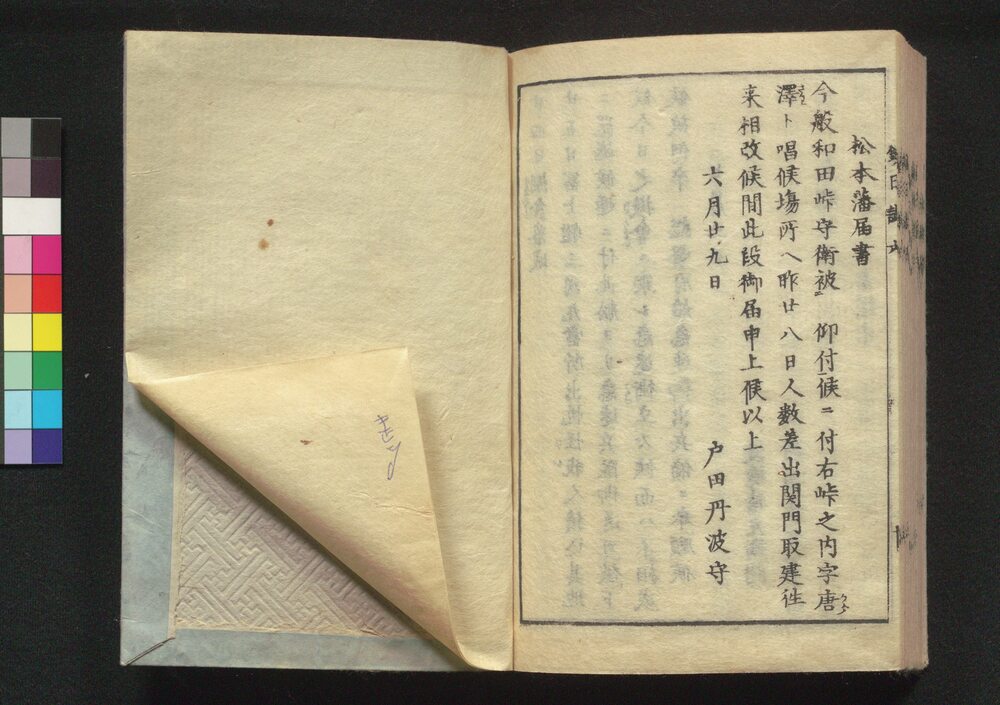 松本藩届書
今般和田峠守衛被　仰付候ニ付右峠之内字唐
澤ト唱候場所ヘ昨廿八日人数差出関門取建徃
来相改候間此段御届申上候以上
六月廿九日
戸田丹波守